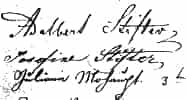 Adalbert Stifter,
Josefine Stifter,
Juliana Mohaupt. 3